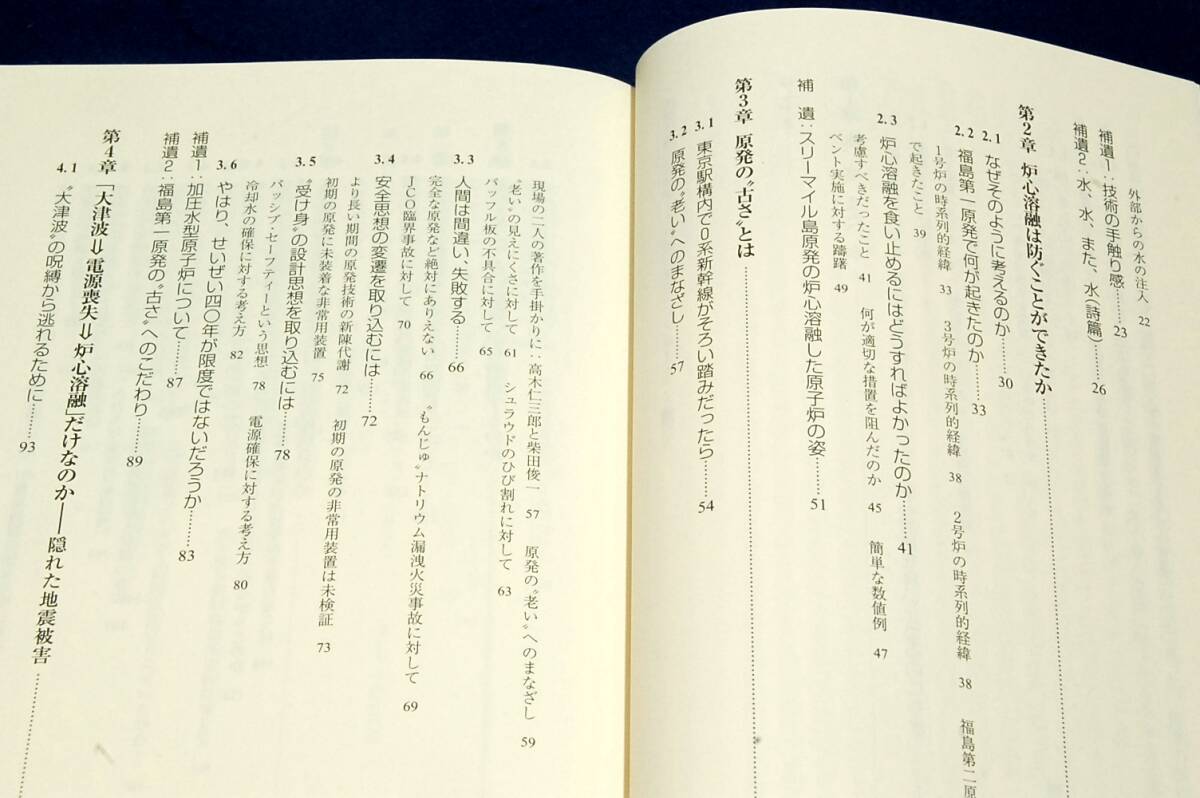 外部からの水の注入 22
補遺1:技術の手触り感……23
補遺2:水、水、また、水(詩篇)……26
第2章 炉心溶融は防ぐことができたか
2.1 なぜそのように考えるのか……30
2.2 福島第一原発で何が起きたのか……33
1号炉の時系列的経緯 33 3号炉の時系列的経緯 38 2号炉の時系列的経緯 38 福島第二原
で起きたこと 39
2.3 炉心溶融を食い止めるにはどうすればよかったのか……41
考慮すべきだったこと 41 何が適切な措置を阻んだのか 45 簡単な数値例 47
ベント実施に対する躊躇 49
補 遺:スリーマイル島原発の炉心溶融した原子炉の姿……51
第3章 原発の〝古さ〟とは
3.1 東京駅構内で0系新幹線がそろい踏みだったら……54
3.2 原発の〝老い〟へのまなざし……57
現場の二人の著作を手掛かりに:高木仁三郎と柴田俊一 57 原発の〝老い〟へのまなざし 59
〝老い〟の見えにくさに対して 61 シュラウドのひび割れに対して 63
バッフル板の不具合に対して 65
3.3 人間は間違い、失敗する……66
完全な原発など絶対にありえない 66 〝もんじゅ〟ナトリウム漏洩火災事故に対して 69
JCO臨界事故に対して 70
3.4 安全思想の変遷を取り込むには……72
より長い期間の原発技術の新陳代謝 72 初期の原発の非常用装置は未検証 73
初期の原発に未装着な非常用装置 75
3.5 〝受け身〟の設計思想を取り込むには……78
パッシブ・セーフティーという思想 78 電源確保に対する考え方 80
冷却水の確保に対する考え方 82
3.6 やはり、せいぜい四〇年が限度ではないだろうか……83
補遺1:加圧水型原子炉について……87
補遺2:福島第一原発の〝古さ〟へのこだわり……89
第4章 「大津波⇒電源喪失⇒炉心溶融」だけなのか――隠れた地震被害
4.1 〝大津波〟の呪縛から逃れるために……93